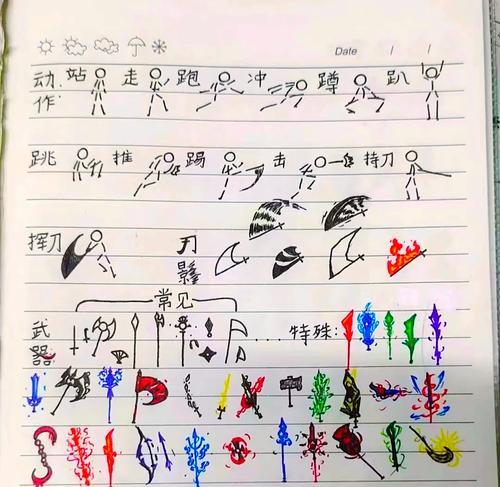 Date / /
动作: 站 走 跑 冲 蹲 趴
跳 推 踢 击 持刀
挥刀 刀影
常见
武器: …… 特殊: